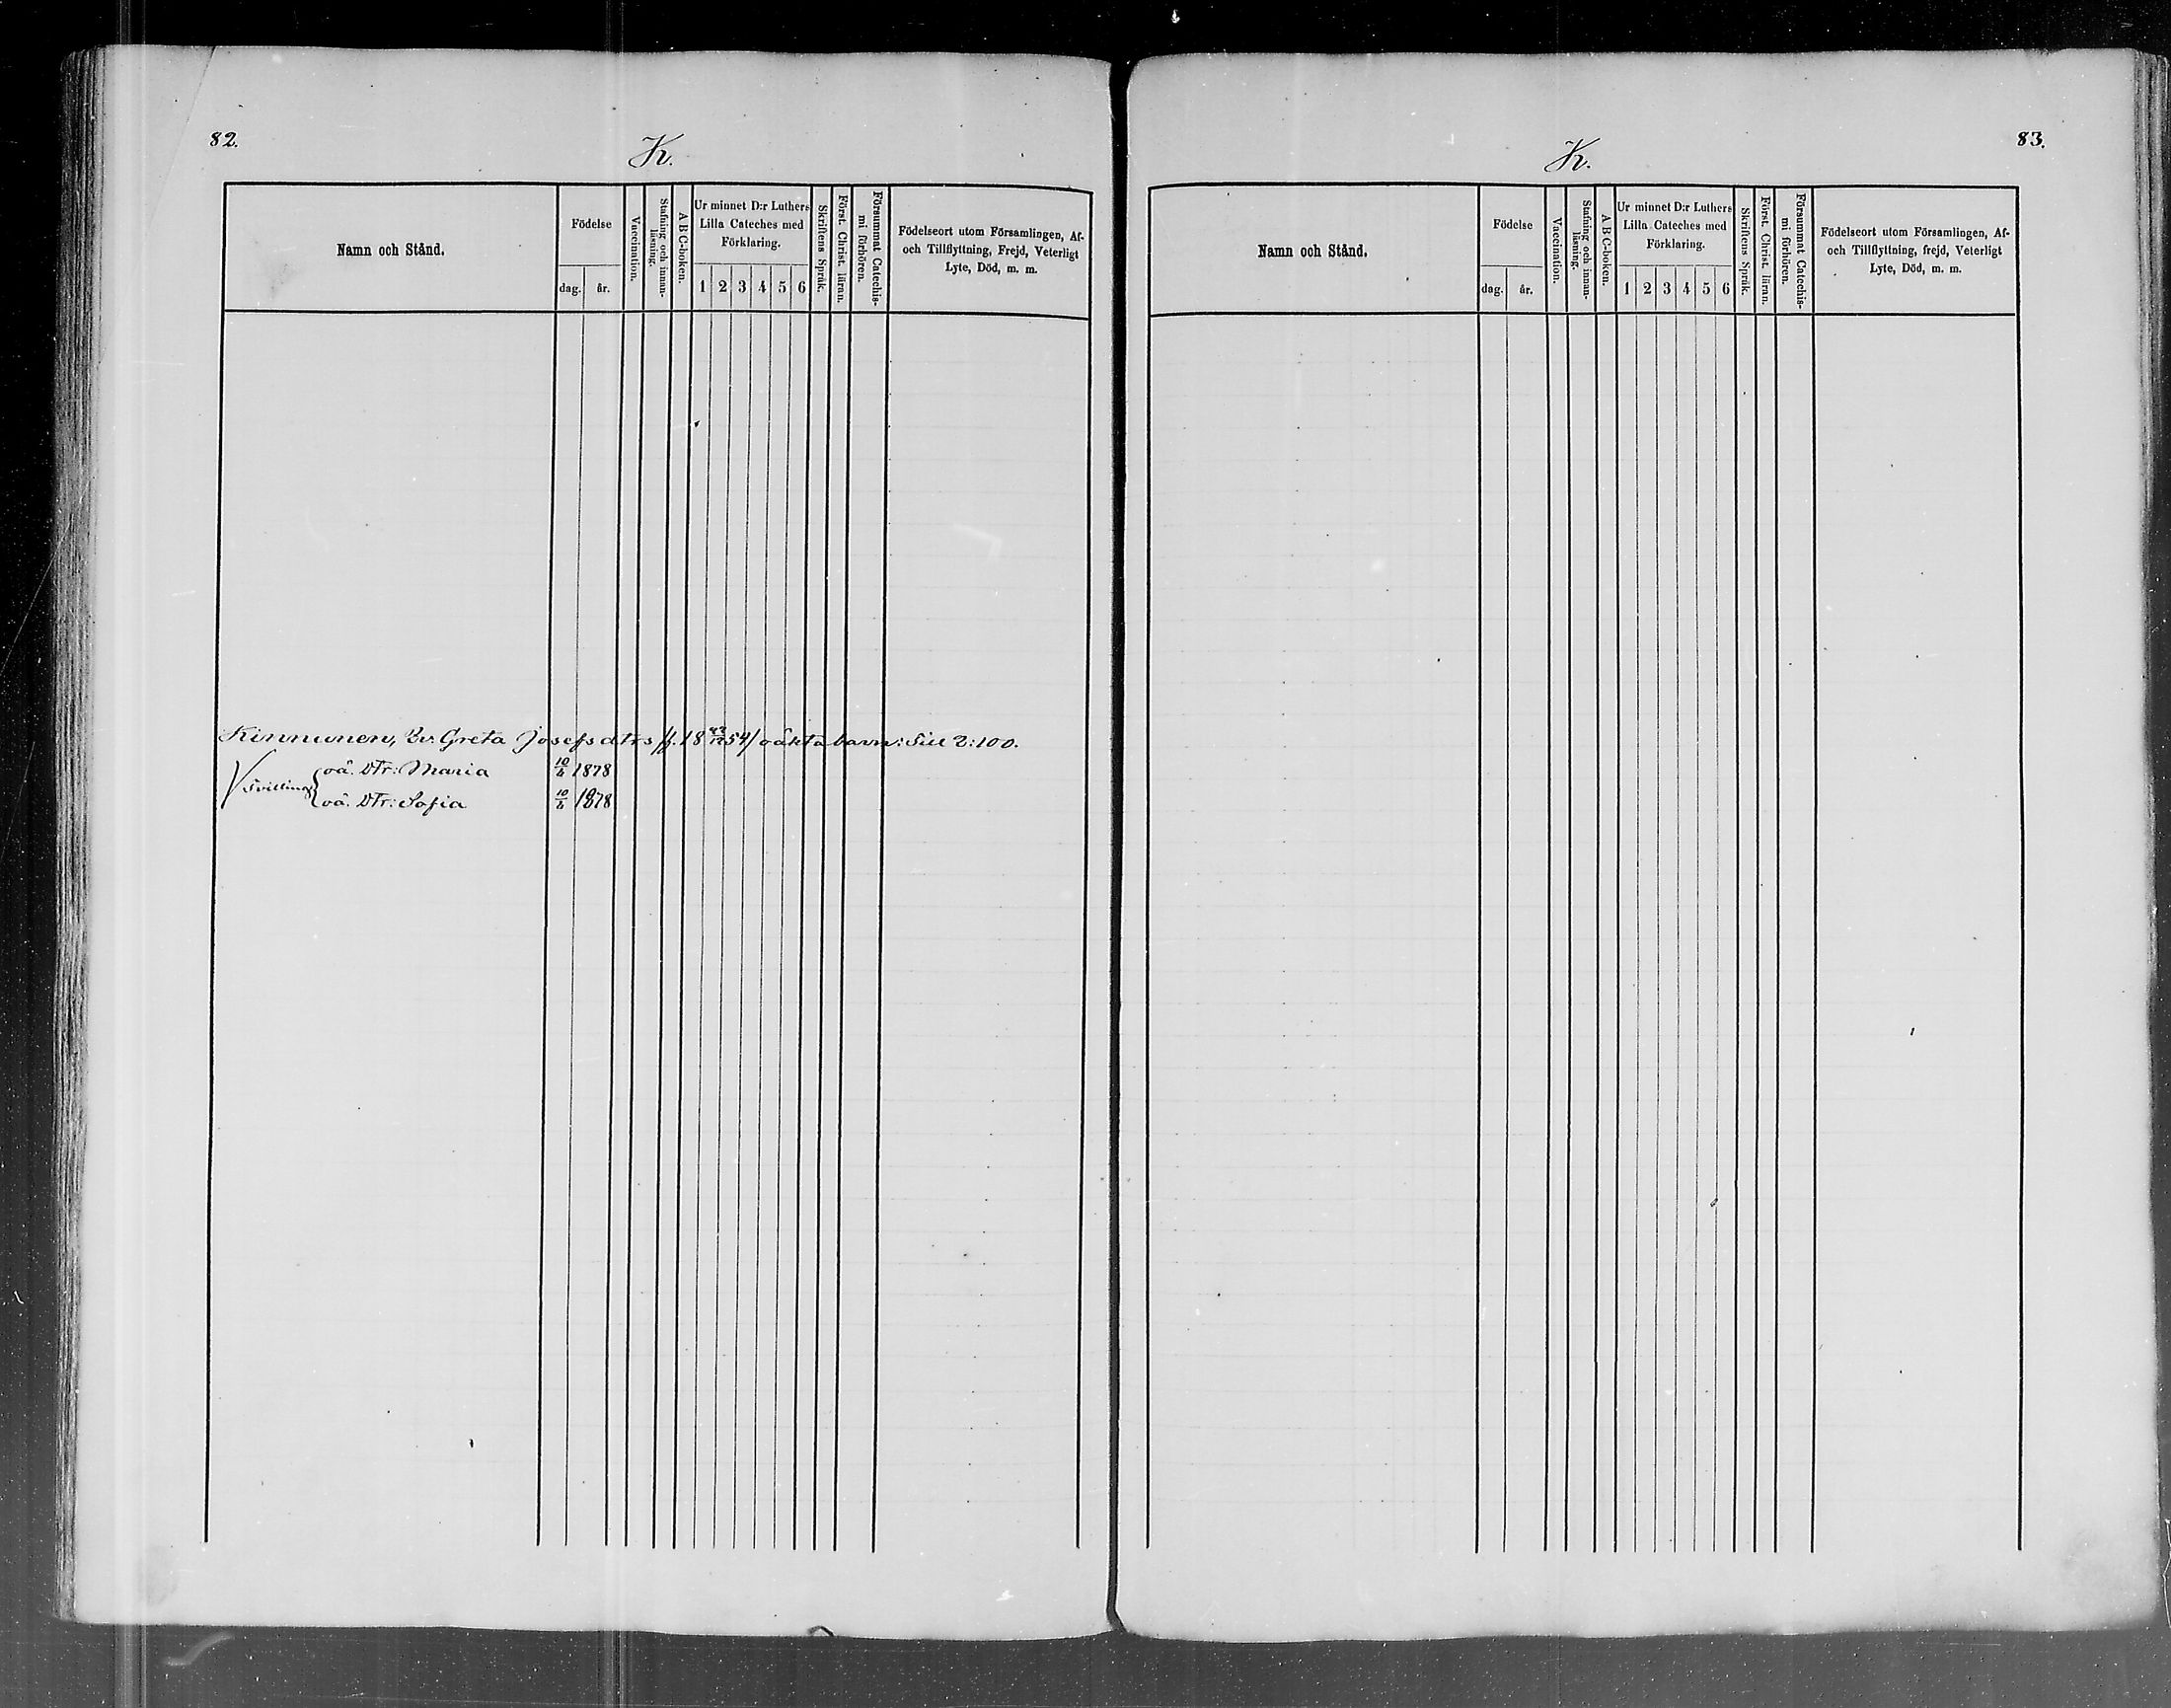 82.
K.
Namn och Stånd.
Födelse
dag.
år.
Vaccination.
Stafning och innan-
läsning.
A B C-boken.
Ur minnet D:r Luthers
Lilla Cateches med
Förklaring.
1 2 3 4 5 6
Skriftens Språk.
Först. Christ. läran.
Försummat Catechis-
mi förhören.
Födelseort utom Församlingen, Af-
och Tillflyttning, Frejd, Veterligt
Lyte, Död, m. m.
Kinnunen, Greta Josefsdtrs /f. 18 54/ oäkta barn: 2:100.
oä. Dtr: Maria 10/6 1878
Tvilling
oä. Dtr: Sofia 10/6 1878
83.
K.
Namn och Stånd.
Födelse
dag.
år.
Vaccination.
Stafning och innan-
läsning.
A B C-boken.
Ur minnet D:r Luthers
Lilla Cateches med
Förklaring.
1 2 3 4 5 6
Skriftens Språk.
Först. Christ. läran.
Försummat Catechis-
mi förhören.
Födelseort utom Församlingen, Af-
och Tillflyttning, frejd, Veterligt
Lyte, Död, m. m.